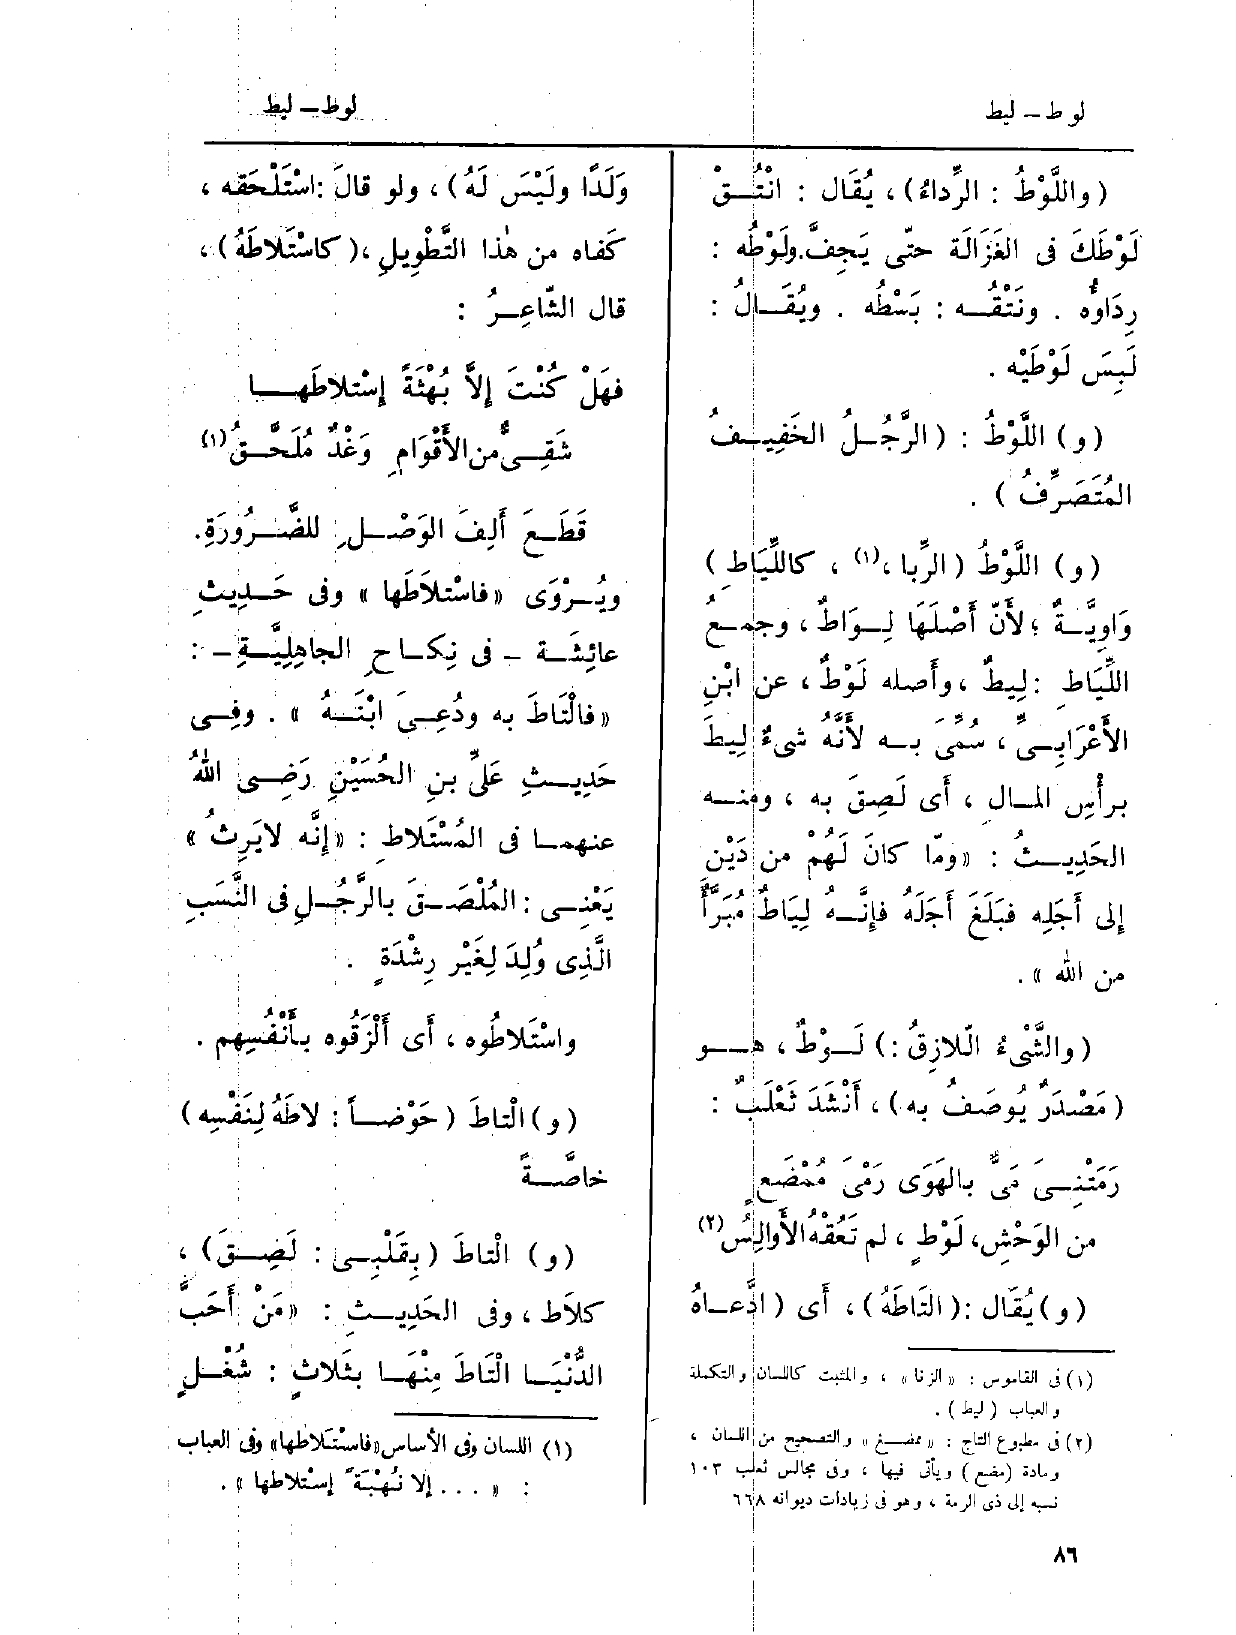 لوط – ليط
لوط – ليط
(واللَّوْطُ : الرِّداءُ) ، يُقَال : انْتُقْ
لَوْطَكَ فى الغَزَالَة حتّى يَجِفَّ. ولَوْطُه :
رِدَاوُه . ونَتْقُه : بَسْطُه . ويُقَالُ :
لَبِسَ لَوْطَيْه .
(و) اللَّوْطُ : (الرَّجُلُ الخَفِيفُ
المُتَصَرِّفُ) .
(و) اللَّوْطُ (الرِّبا ،(١) ، كاللِّيَاطِ)
وَاوِيَّةٌ ؛ لأَنّ أَصْلَهَا لِوَاطٌ ، وجمعُ
اللِّيَاطِ : لِيطٌ ، وأَصله لَوْطٌ ، عن ابْنِ
الأَعْرَابِىِّ ، سُمِّىَ به لأَنَّهُ شىءٌ لِيطَ
برأْسِ المال ، أَى لَصِقَ به ، ومنه
الحَدِيثُ : «ومَا كانَ لَهُمْ من دَيْنٍ
إلى أَجَلِه فبَلَغَ أَجَلَهُ فإِنَّهُ لِيَاطٌ مُبَرَّأٌ
من الله » .
(والشَّىْءُ الَّلازِقُ :) لَوْطٌ ، هو
(مَصْدَرٌ يُوصَفُ به) ، أَنْشَدَ ثَعْلَبٌ :
رَمَتْنِىَ مَىٌّ بالهَوَى رَمْىَ مُمْضَعٍ
من الوَحْشِ، لَوْطٍ ، لم تَعُقْهُ الأَوالِسُ(٢)
(و) يُقَال : (الْتَاطَهُ) ، أَى (ادَّعاهُ
(١) فى القاموس : «الزنا» ، والمثبت كاللسان والتكملة
والعباب (ليط) .
(٢) فى مطبوع التاج : «ممضغ» والتصحيح من اللسان ،
ومادة (مضع) ويأتى فيها ، وفى مجالس ثعلب ١٠٣
نسبه إلى ذى الرمة ، وهو فى زيادات ديوانه ٦٦٨
وَلَدًا ولَيْسَ لَهُ) ، ولو قالَ : اسْتَلْحَقه ،
كفاه من هٰذا التَّطْوِيلِ ،(كاسْتَلاطَهُ) ،
قال الشّاعِرُ :
فهَلْ كُنْتَ إِلاَّ بُهْثَةً إِسْتلاطَها
شَقِىٌّ من الأَقْوَامِ وَغْدٌ مُلَحَّقُ(١)
قَطَعَ أَلِفَ الوَصْلِ للضَّرُورَةِ.
ويُرْوَى «فاسْتلاَطَها» وفى حَدِيثِ
عائِشَة – فى نِكاحِ الجاهِلِيَّةِ – :
«فالْتَاطَ به ودُعِىَ ابْنَهُ » . وفِى
حَدِيثِ عَلىِّ بنِ الحُسَيْنِ رَضِى اللهُ
عنهما فى المُسْتَلاطِ : «إِنَّه لايَرِثُ»
يَعْنِى : المُلْصَقَ بالرَّجُلِ فى النَّسَبِ
الَّذِى وُلِدَ لِغَيْرِ رِشْدَةٍ .
واسْتَلاطُوه ، أَى أَلْزَقُوه بأَنْفُسِهم .
(و) الْتاطَ (حَوْضاً : لاطَهُ لِنَفْسِه)
خاصَّةً
(و) الْتاطَ (بِقَلْبِى : لَصِقَ) ،
كلاَط ، وفى الحَدِيثِ : «مَنْ أَحَبَّ
الدُّنْيَا الْتَاطَ مِنْهَا بثَلاثٍ : شُغْلٍ
(١) اللسان وفى الأساس «فاستلاطها» وفى العباب
: « . . . إلا نُهْبَةً إستلاطها » .
٨٦